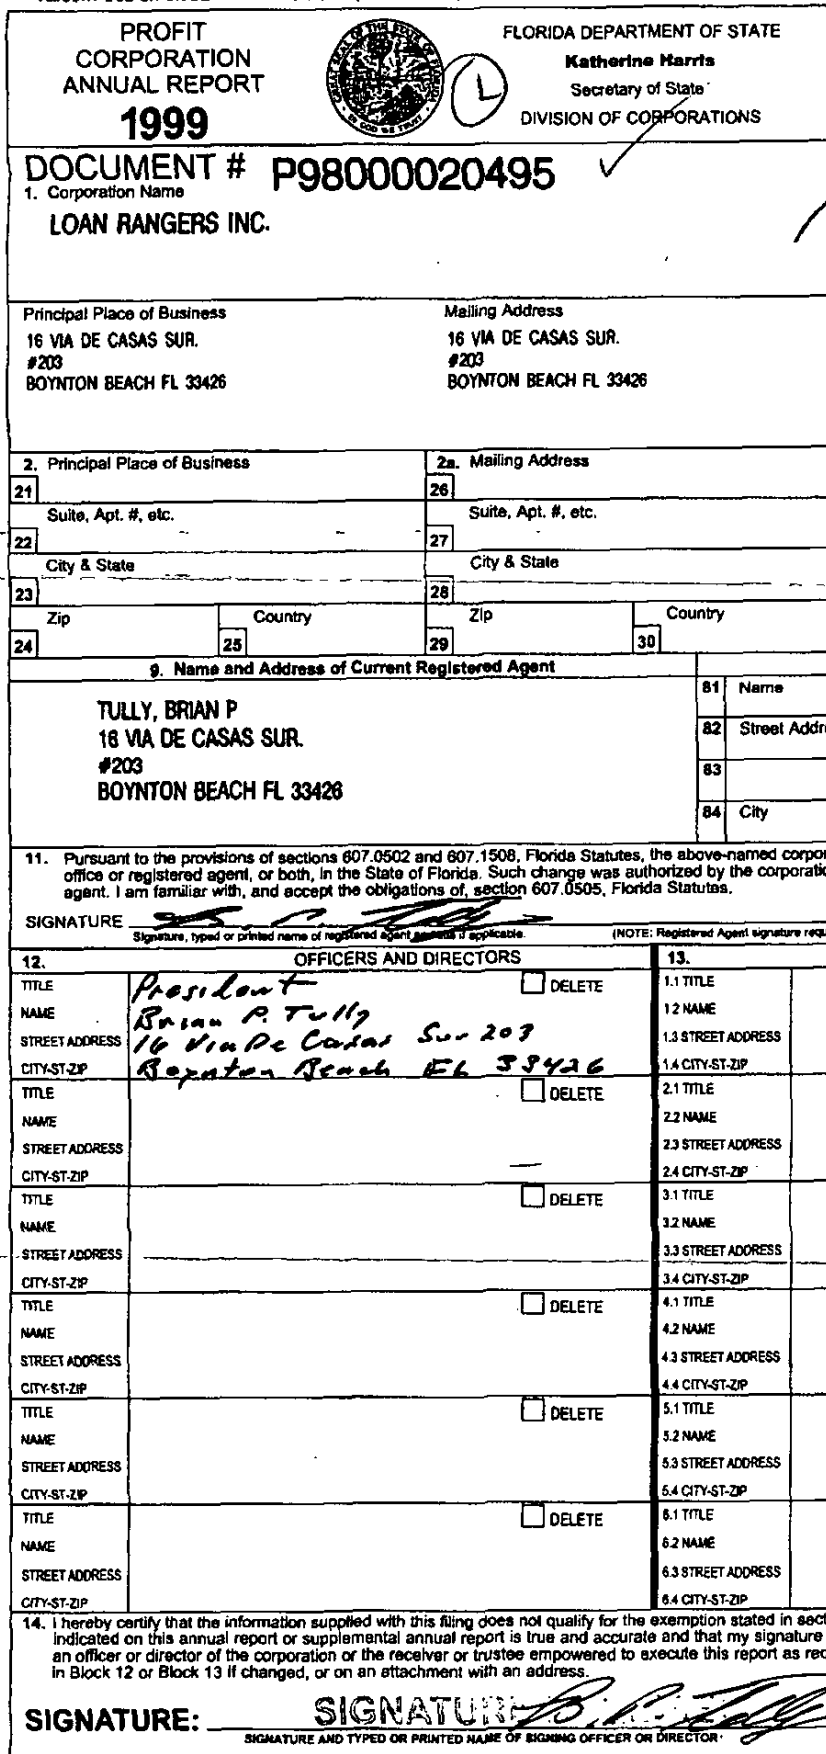 PROFIT
CORPORATION
ANNUAL REPORT
1999
FLORIDA DEPARTMENT OF STATE
Katherine Harris
Secretary of State
DIVISION OF CORPORATIONS
DOCUMENT # P98000020495
1. Corporation Name
LOAN RANGERS INC.
Principal Place of Business
16 VIA DE CASAS SUR.
#203
BOYNTON BEACH FL 33426
Mailing Address
16 VIA DE CASAS SUR.
#203
BOYNTON BEACH FL 33426
2. Principal Place of Business
2a. Mailing Address
21
26
Suite, Apt. #, etc.
Suite, Apt. #, etc.
22
27
City & State
City & State
23
28
Zip
Country
Zip
Country
24
25
29
30
9. Name and Address of Current Registered Agent
TULLY, BRIAN P
16 VIA DE CASAS SUR.
#203
BOYNTON BEACH FL 33426
81 Name
82 Street Addr
83
84 City
11. Pursuant to the provisions of sections 607.0502 and 607.1508, Florida Statutes, the above-named corpor
office or registered agent, or both, in the State of Florida. Such change was authorized by the corporatio
agent. I am familiar with, and accept the obligations of, section 607.0505, Florida Statutes.
SIGNATURE
Signature, typed or printed name of registered agent if applicable.
(NOTE: Registered Agent signature requ
12. OFFICERS AND DIRECTORS
13.
TITLE President DELETE
NAME Brian P. Tully
STREET ADDRESS 16 Via De Casas Sur 203
CITY-ST-ZIP Boynton Beach FL 33426
1.1 TITLE
1.2 NAME
1.3 STREET ADDRESS
1.4 CITY-ST-ZIP
TITLE DELETE
NAME
STREET ADDRESS
CITY-ST-ZIP
2.1 TITLE
2.2 NAME
2.3 STREET ADDRESS
2.4 CITY-ST-ZIP
TITLE DELETE
NAME
STREET ADDRESS
CITY-ST-ZIP
3.1 TITLE
3.2 NAME
3.3 STREET ADDRESS
3.4 CITY-ST-ZIP
TITLE DELETE
NAME
STREET ADDRESS
CITY-ST-ZIP
4.1 TITLE
4.2 NAME
4.3 STREET ADDRESS
4.4 CITY-ST-ZIP
TITLE DELETE
NAME
STREET ADDRESS
CITY-ST-ZIP
5.1 TITLE
5.2 NAME
5.3 STREET ADDRESS
5.4 CITY-ST-ZIP
TITLE DELETE
NAME
STREET ADDRESS
CITY-ST-ZIP
6.1 TITLE
6.2 NAME
6.3 STREET ADDRESS
6.4 CITY-ST-ZIP
14. I hereby certify that the information supplied with this filing does not qualify for the exemption stated in sect
indicated on this annual report or supplemental annual report is true and accurate and that my signature
an officer or director of the corporation or the receiver or trustee empowered to execute this report as rec
in Block 12 or Block 13 if changed, or on an attachment with an address.
SIGNATURE: SIGNATUR
SIGNATURE AND TYPED OR PRINTED NAME OF SIGNING OFFICER OR DIRECTOR